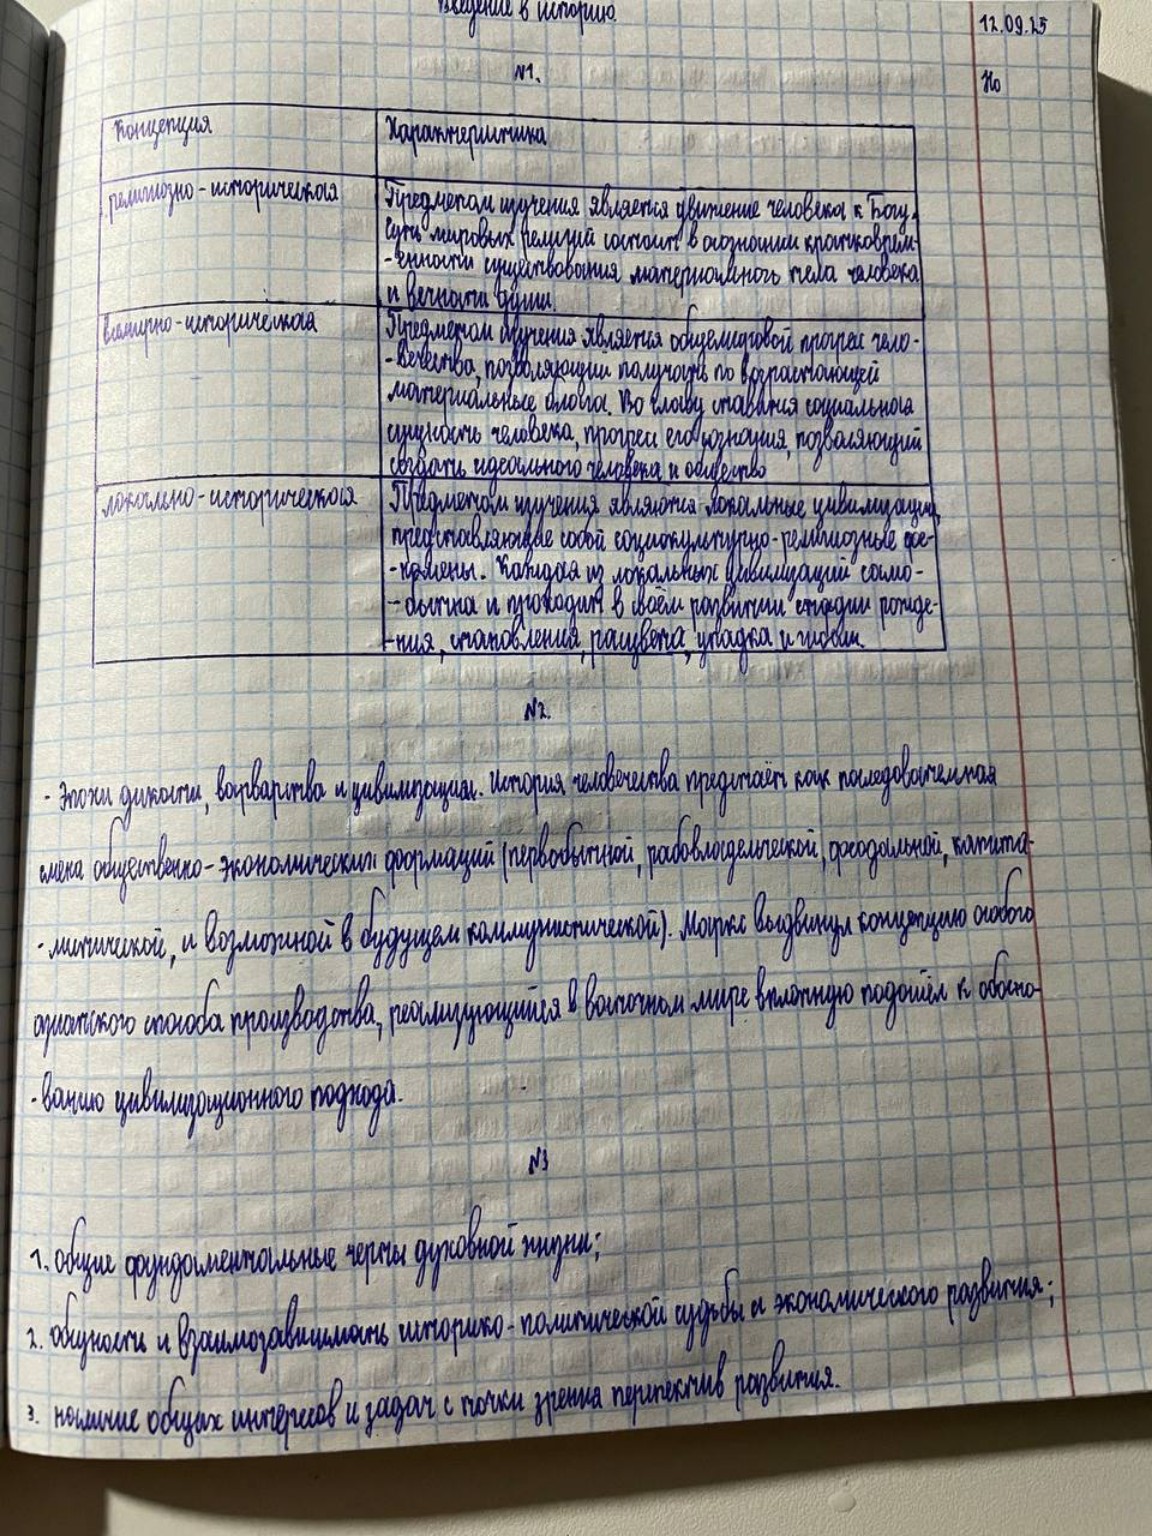 Введение в историю.
12.09.25
№1.
Но
Концепция
Характеристика
религиозно-историческая
Предметом изучения является движение человека к Богу.
Суть мировых религий состоит в осознании кратковрем-
-енности существования материального тела человека
и вечности души.
всемирно-историческая
Предметом изучения является общемировой прогресс чело-
-вечества, позволяющий получать по возрастающей
материальные блага. Во главу ставится социальная
сущность человека, прогресс его сознания, позволяющий
создать идеального человека и общество
локально-историческая
Предметом изучения являются локальные цивилизации,
представляющие собой социокультурно-религиозные фе-
-номены. Каждая из локальных цивилизаций само-
-бытна и проходит в своём развитии стадии рожде-
-ния, становления, расцвета, упадка и гибели.
№2.
- Эпохи дикости, варварства и цивилизации. История человечества предстаёт как последовательная
смена общественно-экономических формаций (первобытной, рабовладельческой, феодальной, капита-
-листической, и возможной в будущем коммунистической). Маркс выдвинул концепцию особого
азиатского способа производства, реализующийся в восточном мире вплотную подошёл к обосно-
-ванию цивилизационного подхода.
№3
1. общие фундаментальные черты духовной жизни;
2. общность и взаимозависимость историко-политической судьбы и экономического развития;
3. наличие общих интересов и задач с точки зрения перспектив развития.